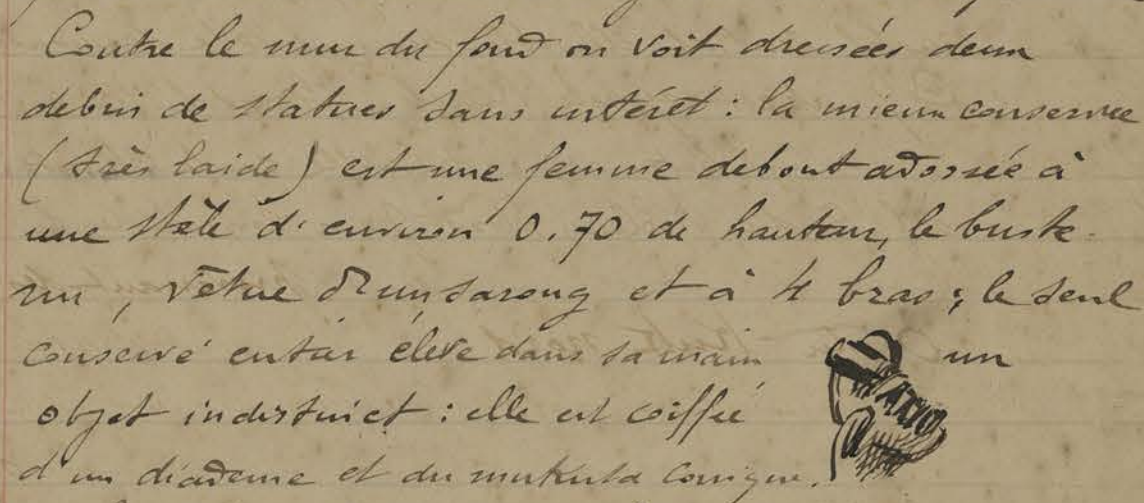 Contre le mur du fond on voit dressées deux
debris de statues sans intéret : la mieux conservée
(très laide) est une femme debout adossée à
une stèle d'environ 0.70 de hauteur, le buste
nu, vêtue d'un sarong et à 4 bras ; le seul
conservé entier élève dans sa main un
objet indistinct : elle est coiffée
d'un diadème et du mukuta conique.